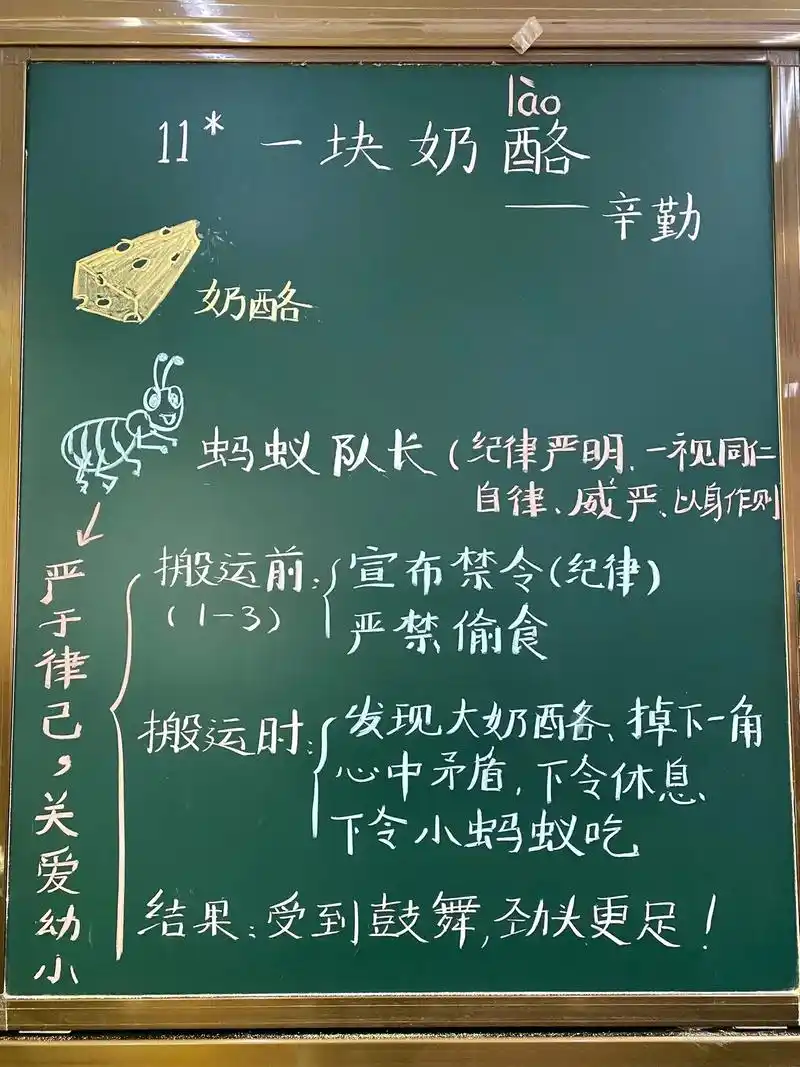 lào
11* 一块奶酪
——辛勤
奶酪
蚂蚁队长(纪律严明、一视同仁
自律、威严、以身作则
严于律己,关爱幼小
搬运前:
(1-3)
宣布禁令(纪律)
严禁偷食
搬运时:
发现大奶酪、掉下一角
心中矛盾,下令休息、
下令小蚂蚁吃
结果:受到鼓舞,劲头更足!